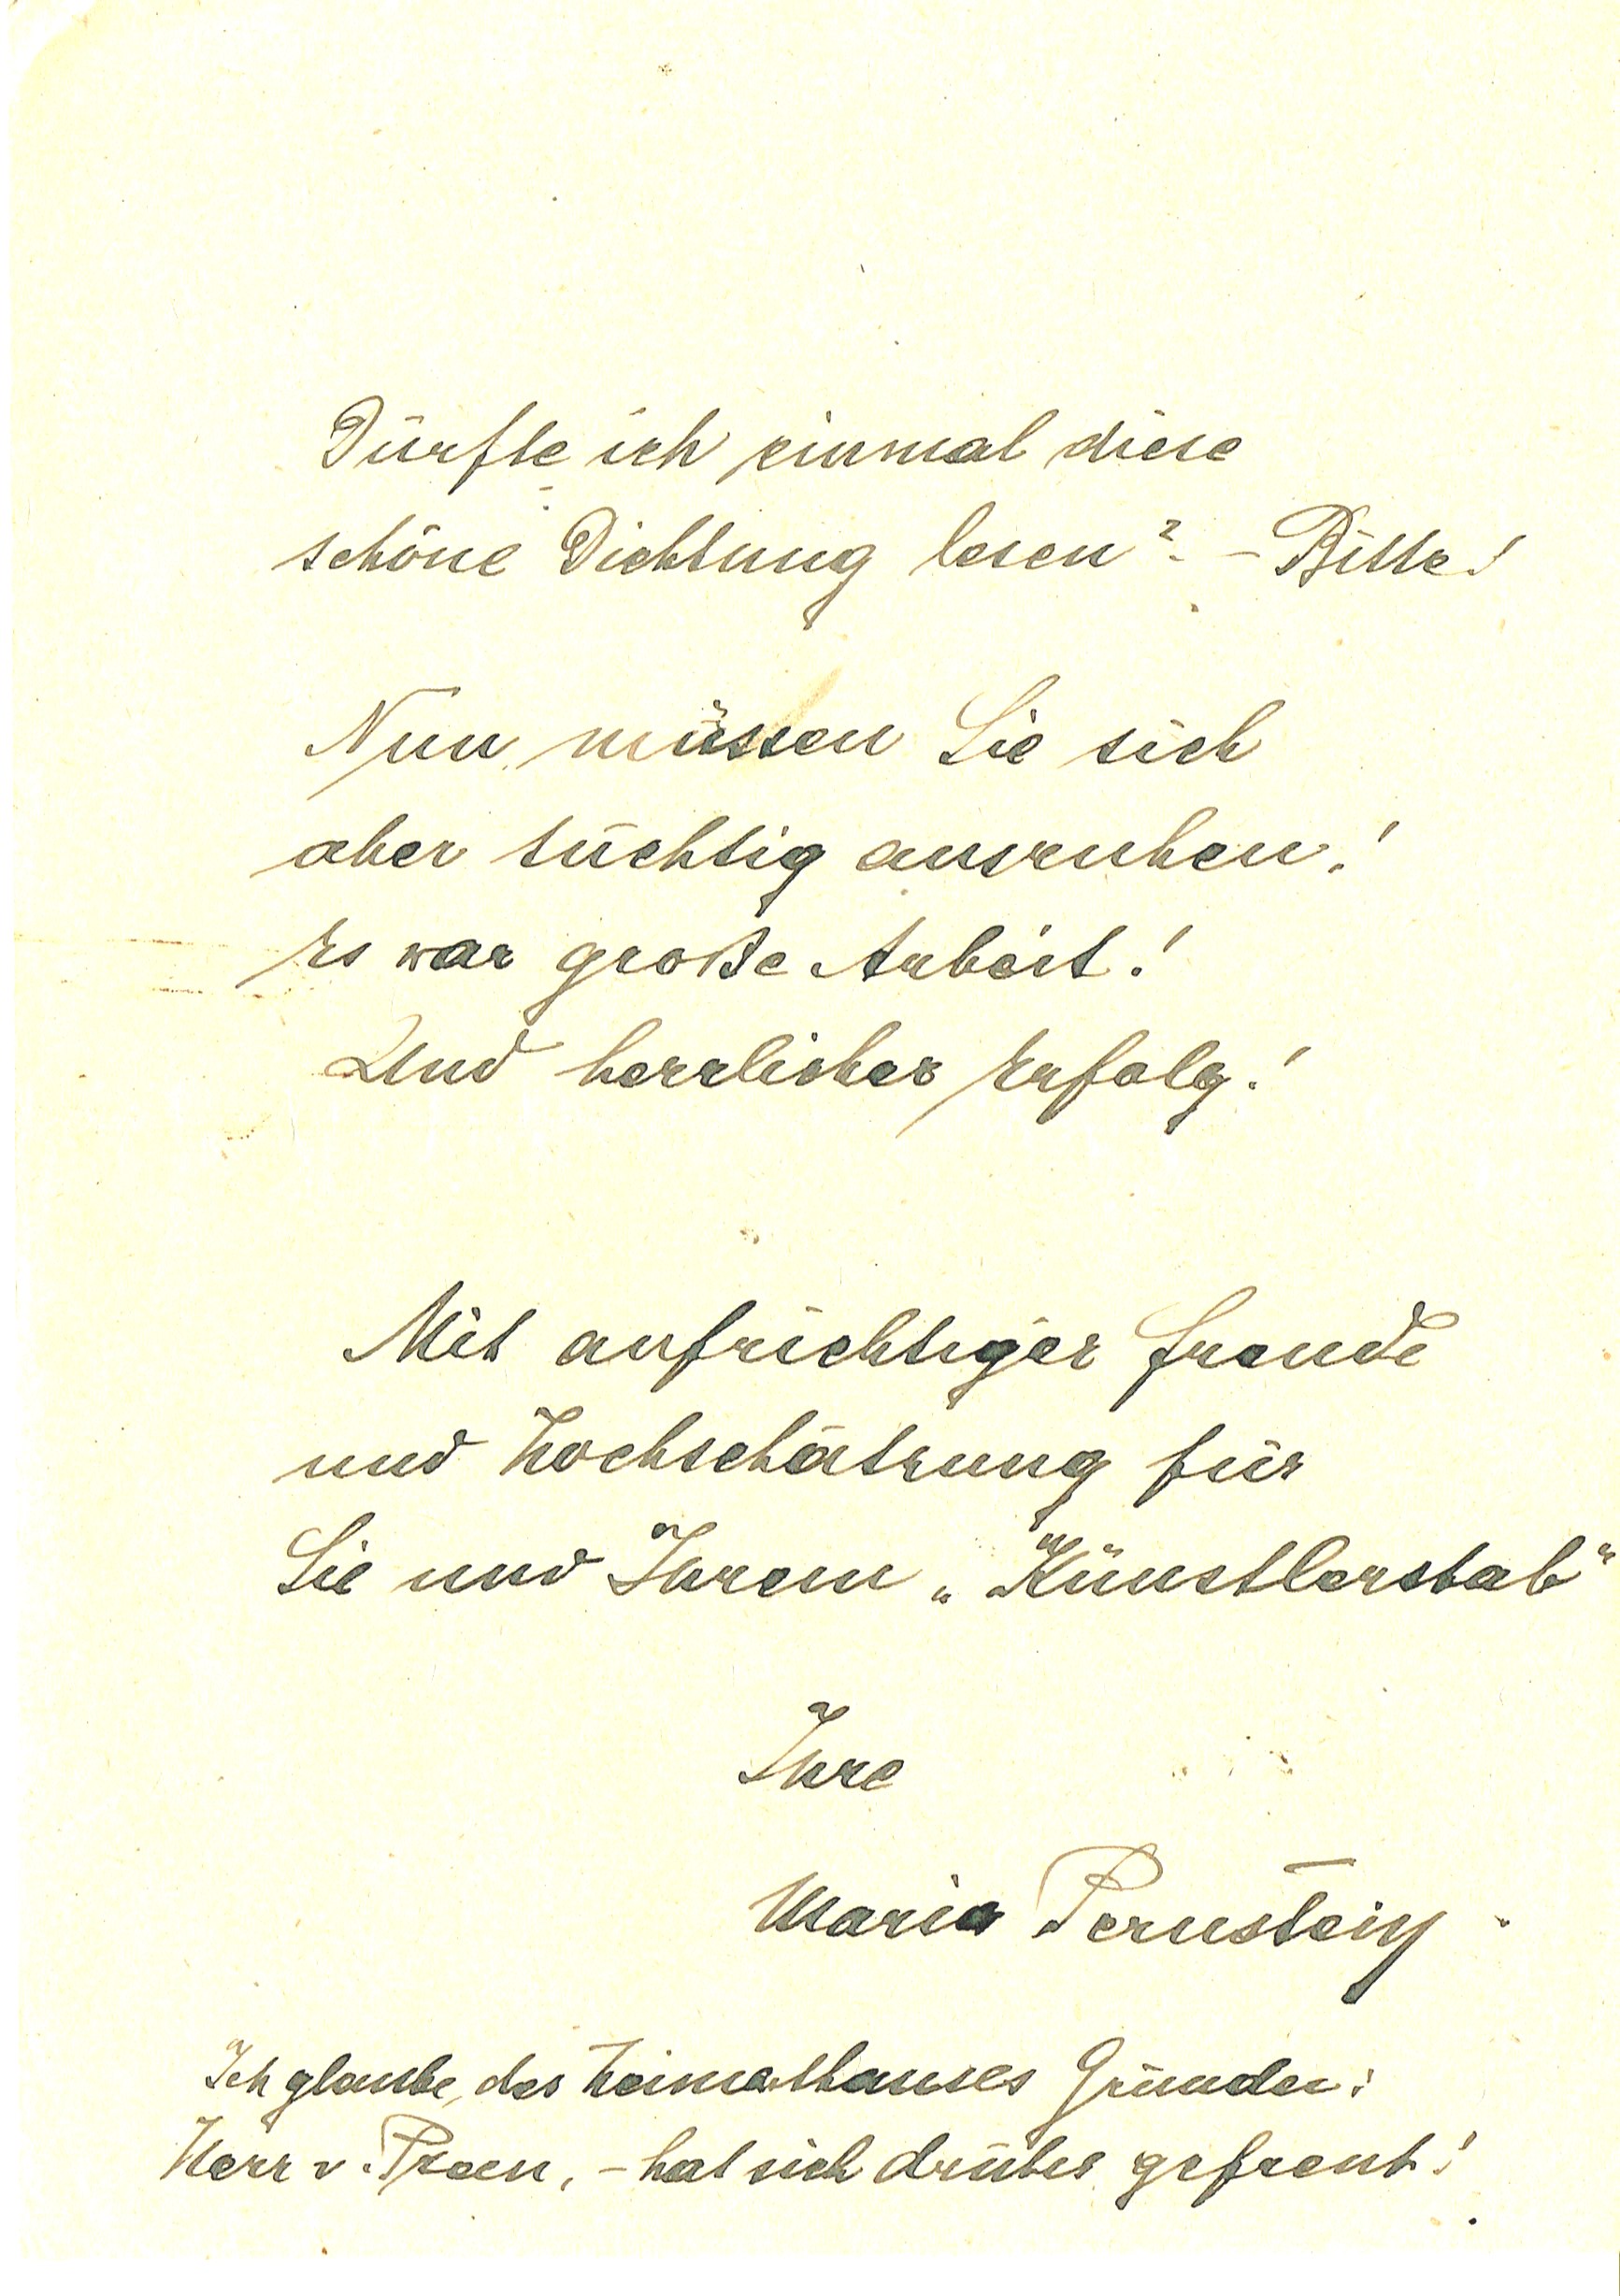 Dürfte ich einmal diese
schöne Dichtung lesen? – Bitte!
Nun müssen Sie sich
aber tüchtig ausruhen!
Es war große Arbeit!
Und herrlicher Erfolg!
Mit aufrichtiger Freude
und Hochschätzung für
Sie und Ihrem „Künstlerstab"
Ihre
Maria Pernstein
Ich glaube, des Heimathauses Gründer:
Herr v. Preen, – hat sich drüber gefreut!